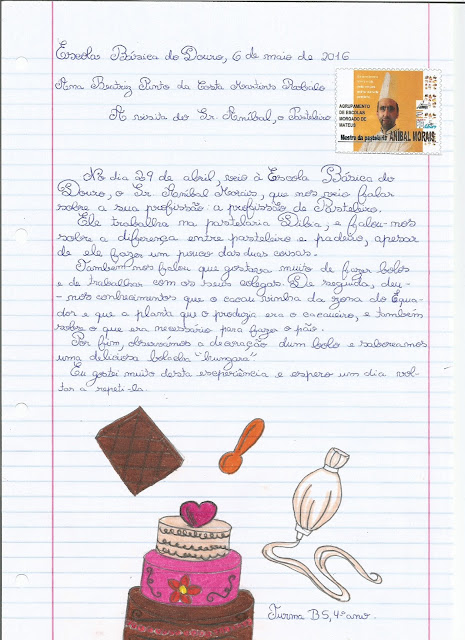 Escola Básica do Douro, 6 de maio de 2016
Ana Beatriz Pinto da Costa Martins Rabaldo
A visita do Sr. Aníbal, o Pasteleiro
AGRUPAMENTO
DE ESCOLAS
MORGADO DE
MATEUS
Mestre da pastelaria ANÍBAL MORAIS
No dia 29 de abril, veio à Escola Básica do
Douro, o Sr. Aníbal Morais, que nos veio falar
sobre a sua profissão: a profissão de Pasteleiro.
Ele trabalha na pastelaria Diba, e falou-nos
sobre a diferença entre pasteleiro e padeiro, apesar
de ele fazer um pouco das duas coisas.
Também nos falou que gostava muito de fazer bolos
e de trabalhar com os seus colegas. De seguida, deu-
-nos conhecimentos que o cacau vinha da zona do Equa-
dor e que a planta que o produzia era o cacaueiro, e também
sobre o que era necessário para fazer o pão.
Por fim, observámos a decoração dum bolo e saboreamos
uma deliciosa bolacha "húngara".
Eu gostei muito desta experiência e espero um dia vol-
tar a repeti-la.
Turma B5, 4º ano.